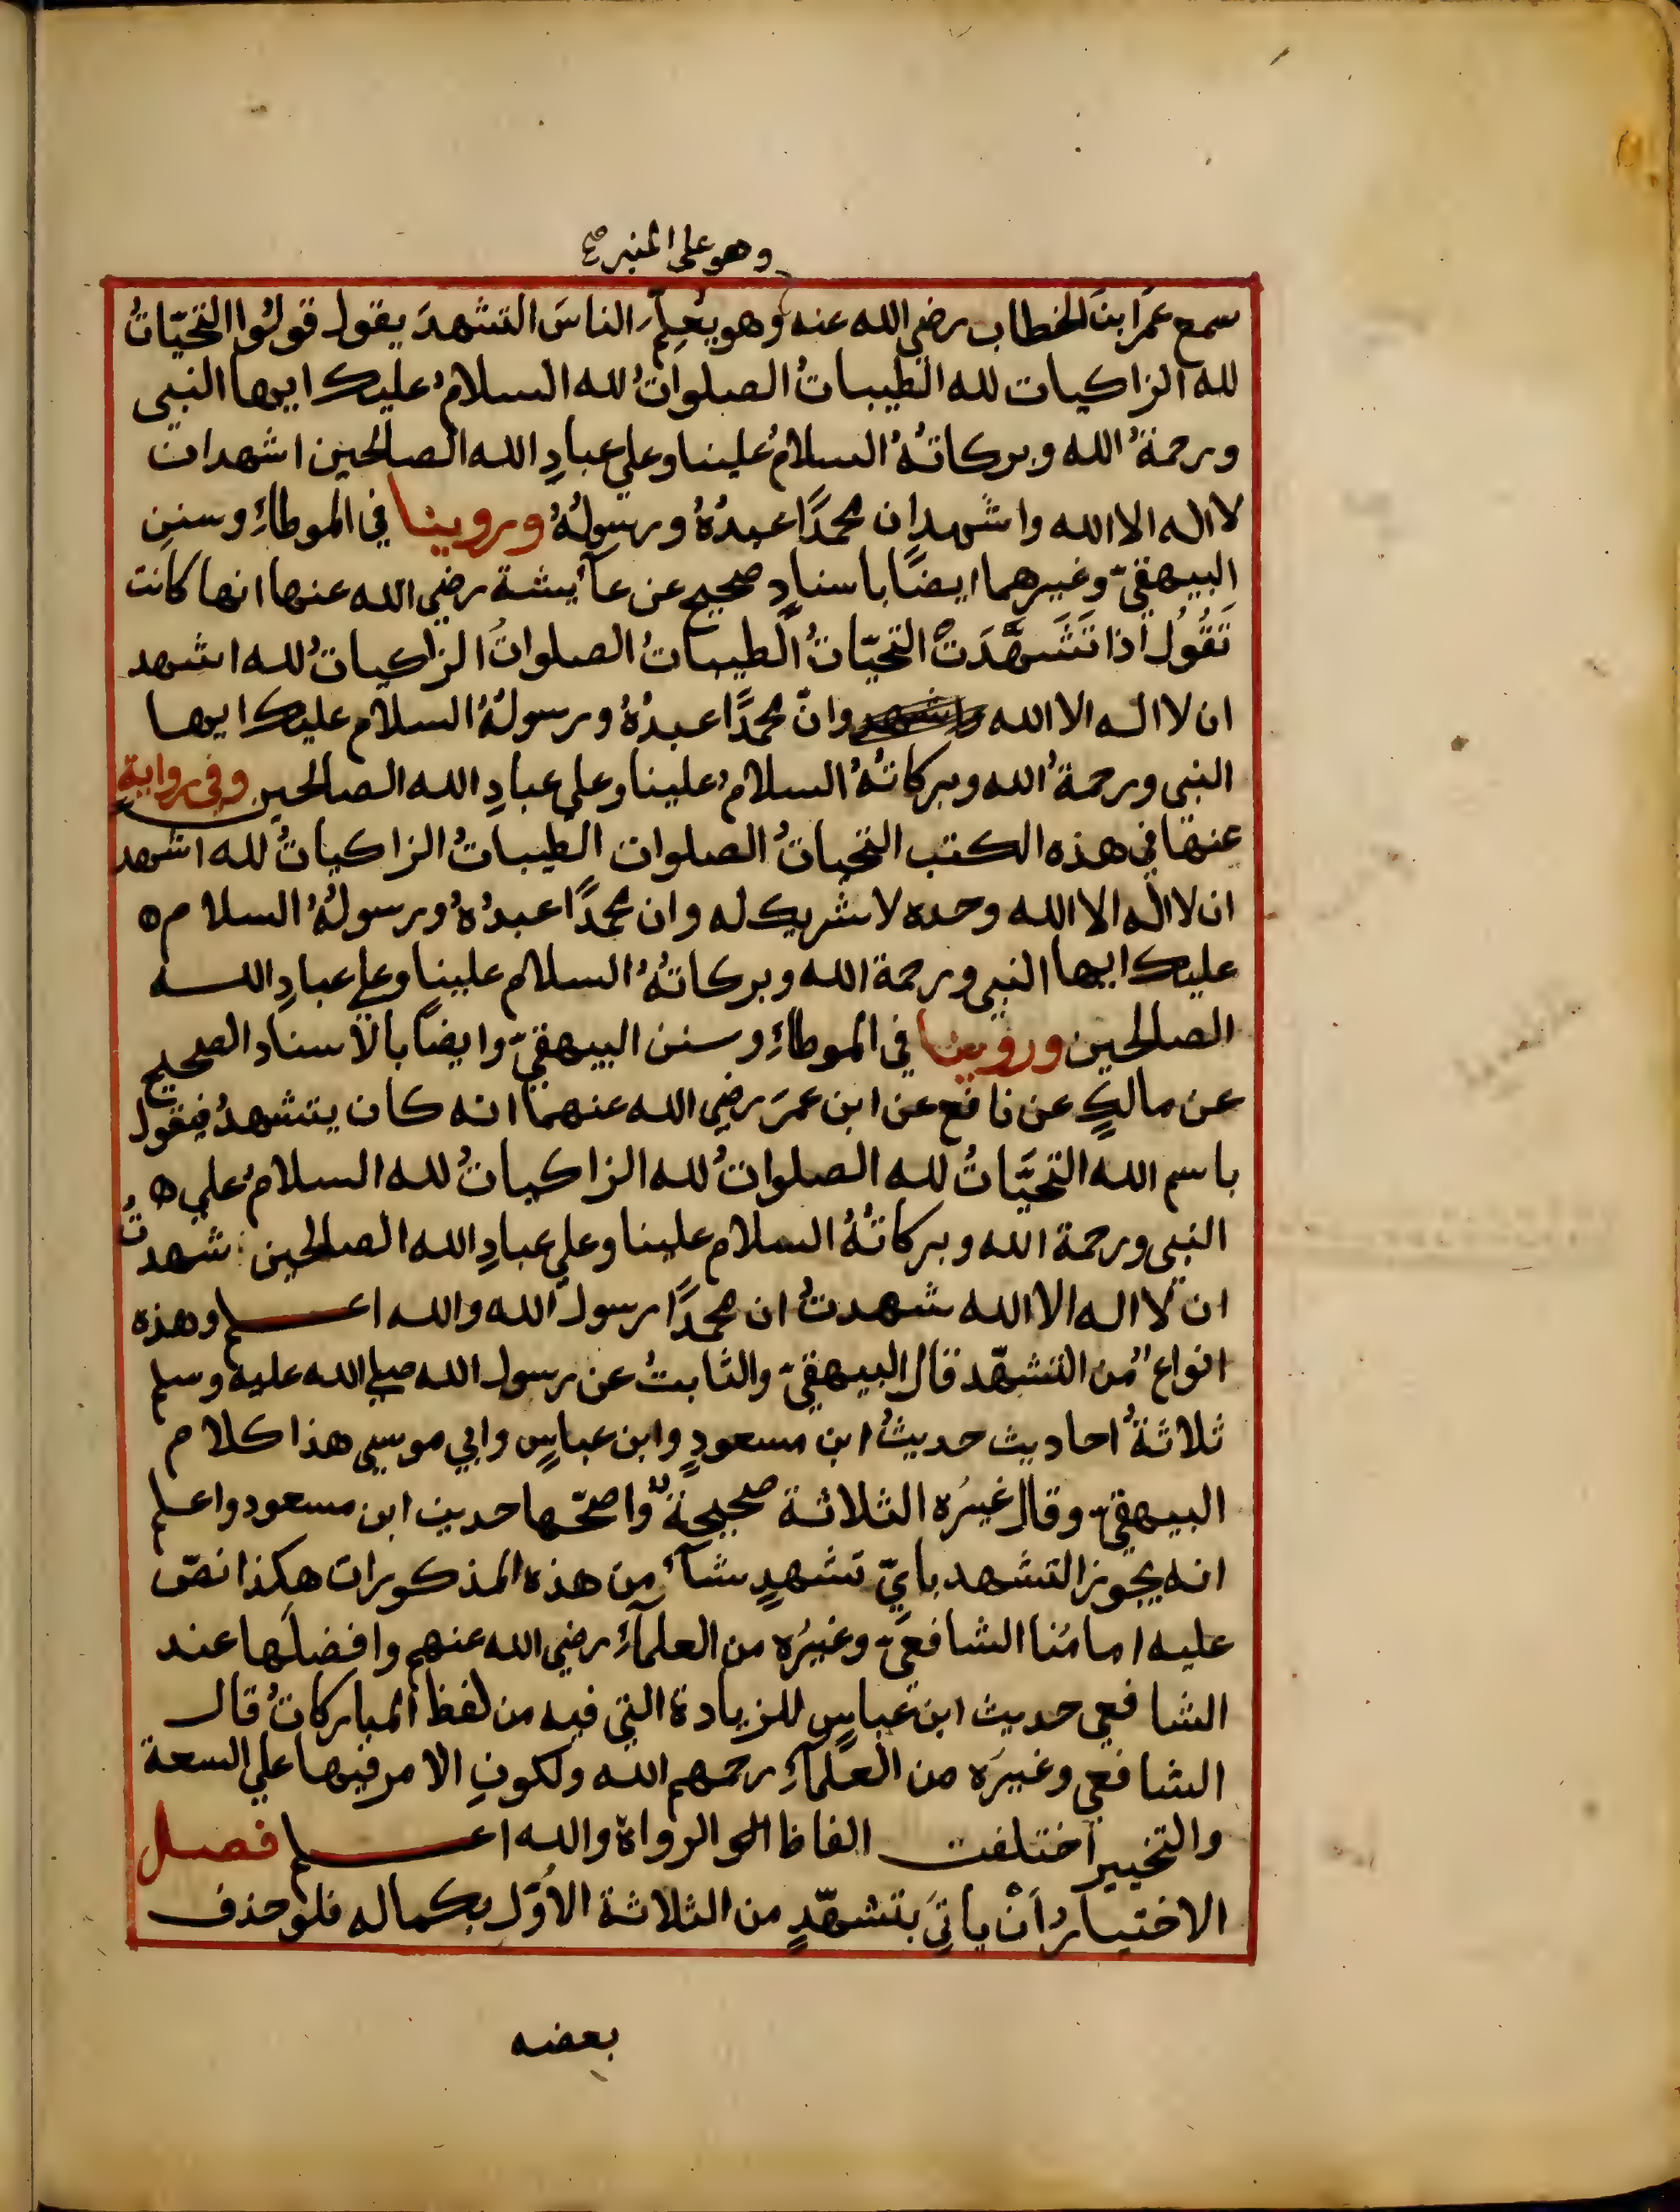 وهو على المنبر صح
سمع عمَرَ ابنَ الخطاب رضي الله عنه وهو يُعلِّم الناسَ التشهدَ يقول قولُوا التحيّاتُ
لله الزاكيات لله الطيباتُ الصلواتُ لله السلامُ عليك ايها النبي
ورحمةُ الله وبركاتهُ السلامُ علينا وعلي عبادِ الله الصالحين اشهد ان
لا اله الا الله واشهد ان محمدًا عبدُهُ ورسولُهُ وروينا في الموطاءِ وسننِ
البيهقيّ وغيرِهما ايضًا باسنادٍ صحيحٍ عن عآيشة رضي الله عنها انها كانت
تَقُولُ اذا تَشَهَّدَتْ التحيّاتُ الطيباتُ الصلواتُ الزاكياتُ لله اشهد
ان لا اله الا الله وانّ محمدًا عبدُهُ ورسولهُ السلام عليك ايها
النبي ورحمةُ الله وبركاتهُ السلامُ علينا وعلي عبادِ الله الصالحين وفي روايةٍ
عنها في هذه الكتب التحياتُ الصلوات الطيباتُ الزاكياتُ لله اشهد
ان لا اله الا الله وحده لا شريك له وان محمدًا عبدُهُ ورسولهُ السلام ه
عليك ايها النبي ورحمة الله وبركاتهُ السلام علينا وعلي عبادِ الله
الصالحين وروينا في الموطاءِ وسنن البيهقيّ وايضًا بالاسناد الصحيح
عن مالكٍ عن نافع عن ابن عمرَ رضي الله عنهما انه كان يتشهدُ فيقول
باسم الله التحيَّاتُ لله الصلواتُ لله الزاكياتُ لله السلامُ علي ه
النبي ورحمة الله وبركاتهُ السلام علينا وعلي عبادِ الله الصالحين شهدتُ
ان لا اله الا الله شهدتُ ان محمدًا رسول الله والله اعلم وهذه
انواعٌ من التشهّد قال البيهقيّ والثابتُ عن رسول الله صلي الله عليه وسلم
ثلاثةُ احاديث حديثُ ابن مسعودٍ وابن عباسٍ وابي موسي هذا كلام
البيهقيّ وقال غيرُه الثلاثة صحيحةٌ واصحّها حديث ابن مسعود واعلم
انه يجوز التشهد بايّ تشهدٍ شآء من هذه المذكورات هكذا نصّ
عليه امامُنا الشافعيّ وغيرُه من العلمآءِ رضي الله عنهم وافضلُها عند
الشافعي حديث ابن عباسٍ للزيادة التي فيه من لفظ المباركاتُ قال
الشافعي وغيرَه من العلمآءِ رحمهم الله ولكونِ الامر فيها علي السعة
والتخيير اختلفت الفاظ الرواة والله اعلم فصل
الاختيارُ اَنْ ياتيَ بتشهّدٍ من الثلاثة الاُوَّل بكماله فلو حذف
بعضه